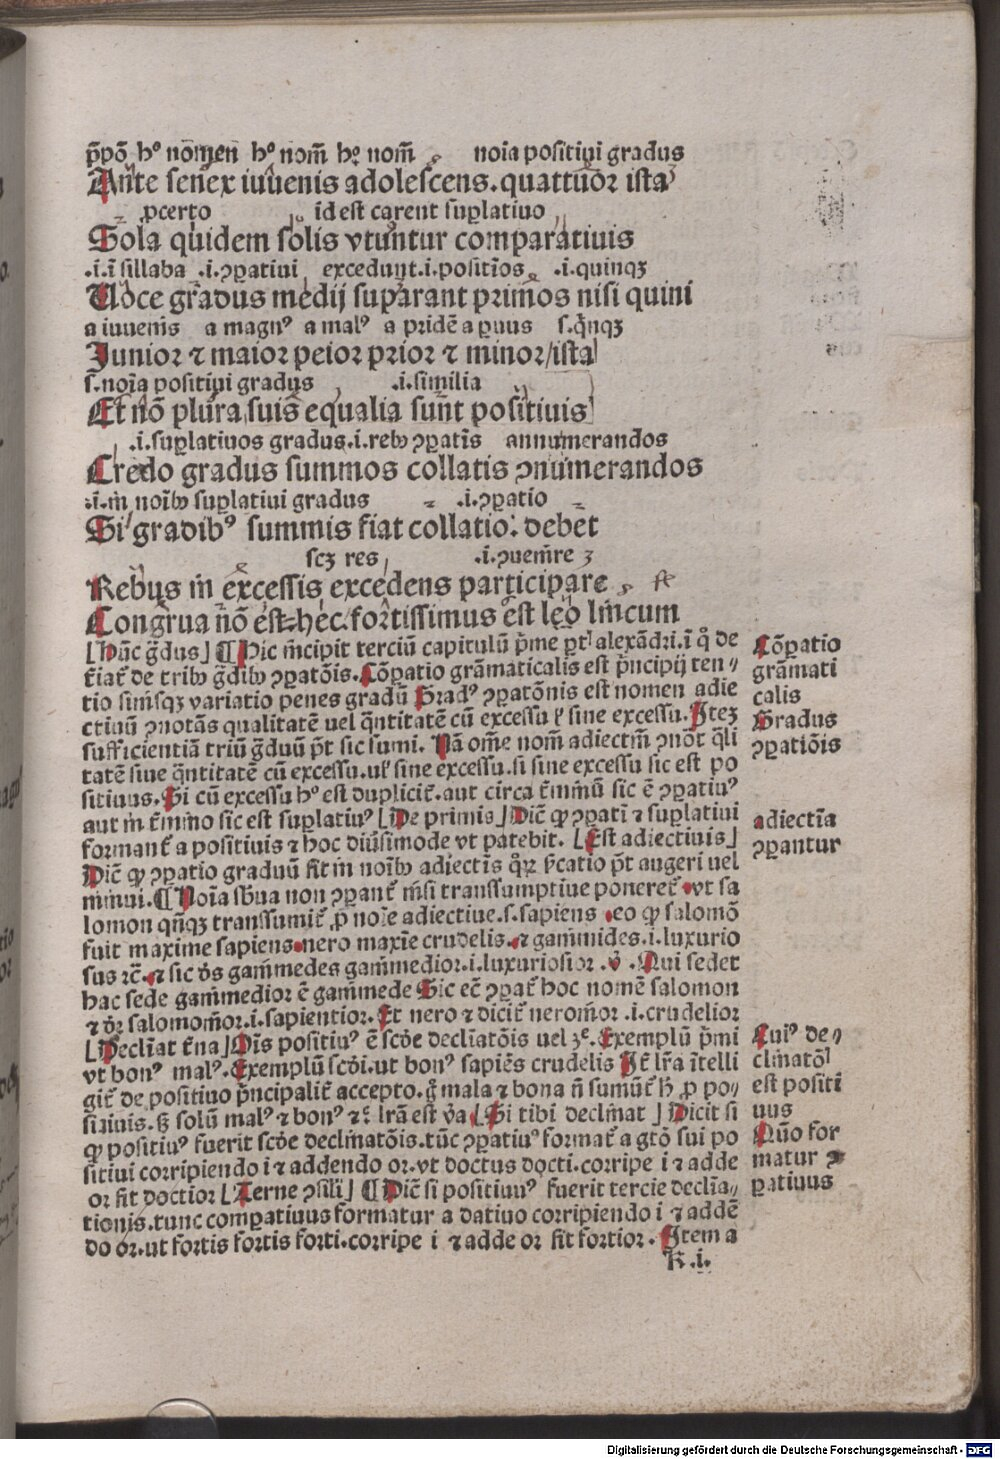 p̄pō hº nōmen hº nom̄ hº nom̄ noīa positiui gradus
Ante senex iuuenis adolescens. quattuor ista
ꝓcerto id est carent suꝑlatiuo
Sola quidem solis vtuntur comparatiuis
.i. ī sillaba .i. ꝯꝑatiui excedunt .i. positiōs .i. quinqꝫ
Uoce gradus medij suparant primos nisi quini
a iuuenis a magnꝰ a malꝰ a pridē a ꝑuus s. q̄nqꝫ
Junior ⁊ maior peior prior ⁊ minor/ista
s. noīa positiui gradus .i. similia
Et nō plura suis equalia sunt positiuis
.i. suꝑlatiuos gradus .i. rebꝫ ꝯꝑatīs annumerandos
Credo gradus summos collatis ꝯnumerandos
.i. in noībꝫ suꝑlatiui gradus .i. ꝯꝑatio
Si gradibꝰ summis fiat collatio: debet
scꝫ res .i. ꝯuenire
Rebus in excessis excedens participare
Congrua nō est hec fortissimus est leo lincum
[Hūc g̃dus] ¶ Hic incipit terciū capitulū p̄me ꝑtꝭ alexādri. ī q̊ de
t̄iat̄ de tribꝫ g̃dibꝫ ꝯꝑatōis. Cōꝑatio grāmaticalis est p̄ncipij ten⸗
tio sinisqꝫ variatio penes gradū Gradꝰ ꝯꝑatōnis est nomen adie
ctiuū ꝯnotās qualitatē uel q̄ntitatē cū excessu ł sine excessu. Itēꝫ
sufficientiā triū g̃duū p̄t sic sumi. Nā om̄e nom̄ adiectm̄ ꝯnot̄ q̄li
tatē siue q̄ntitatē cū excessu. uł sine excessu. si sine excessu sic est po
sitiuus. Si cū excessu hº est duplicit̄. aut circa t̄minū sic ē ꝯꝑatiuꝰ
aut in t̄mino sic est suꝑlatiuꝰ [De primis] Dic̄ ꝙ ꝯꝑati ⁊ suꝑlatiui
formant̄ a positiuis ⁊ hoc diūsimode vt patebit. [Est adiectiuis]
Dic̄ ꝙ ꝯꝑatio graduū fit in noībꝫ adiectīs q̊ꝝ s̄catio p̄t augeri uel
minui. ¶ Noīa sb̄ua non ꝯꝑant̄ nisi transsumptiue poneret̄ vt sa
lomon qn̄qꝫ transsumit̄ ꝓ noīe adiectiue. s. sapiens eo ꝙ salomō
fuit maxime sapiens nero maxīe crudelis. ⁊ gam̄mides .i. luxurio
sus ⁊c̄. ⁊ sic vs gam̄medes gam̄medior .i. luxuriosior. Qui sedet
hac sede gam̄medior ē gam̄mede Sic ec̄ ꝯꝑat̄ hoc nomē salomon
⁊ dr̄ salomonior .i. sapientior. Et nero ⁊ dicit̄ neronior .i. crudelior
[Declīat t̄na] Oīs positiuꝰ ē scd̄e declīatōis uel 3ᵉ. Exemplū p̄mi
vt bonꝰ malꝰ. Exemplū scd̄i. ut bonꝰ sapiēs crudelis It̄ lr̄a ītelli
git̄ de positiuo p̄ncipalit̄ accepto. qꝛ mala ⁊ bona n̄ sumūt̄ h̄ ꝓ po⸗
sitiuis. sꝫ solū malꝰ ⁊ bonꝰ ⁊ c̄ lr̄a est v̄a [Si tibi declinat] Dicit si
ꝙ positiuꝰ fuerit scd̄e declinatōis. tūc ꝯꝑatiuꝰ format̄ a gtō sui po
sitiui corripiendo i ⁊ addendo or. vt doctus docti. corripe i ⁊ adde
or fit doctior [Terne ꝯsili] ¶ Dic̄ si positiuuꝰ fuerit tercie declīa⸗
tionis. tunc comꝑatiuus formatur a datiuo corripiendo i ⁊ addē
do or. ut fortis fortis forti. corripe i ⁊ adde or fit fortior. Item a
K .i.
Cōꝑatio
grāmati
calis
Gradus
ꝯꝑatiōis
adiectīa
ꝯꝑantur
Cuiꝰ de⸗
clinatōꝭ
est positi
uus
Quō for
matur ꝯ
ꝑatiuus
Digitalisierung gefördert durch die Deutsche Forschungsgemeinschaft - DFG